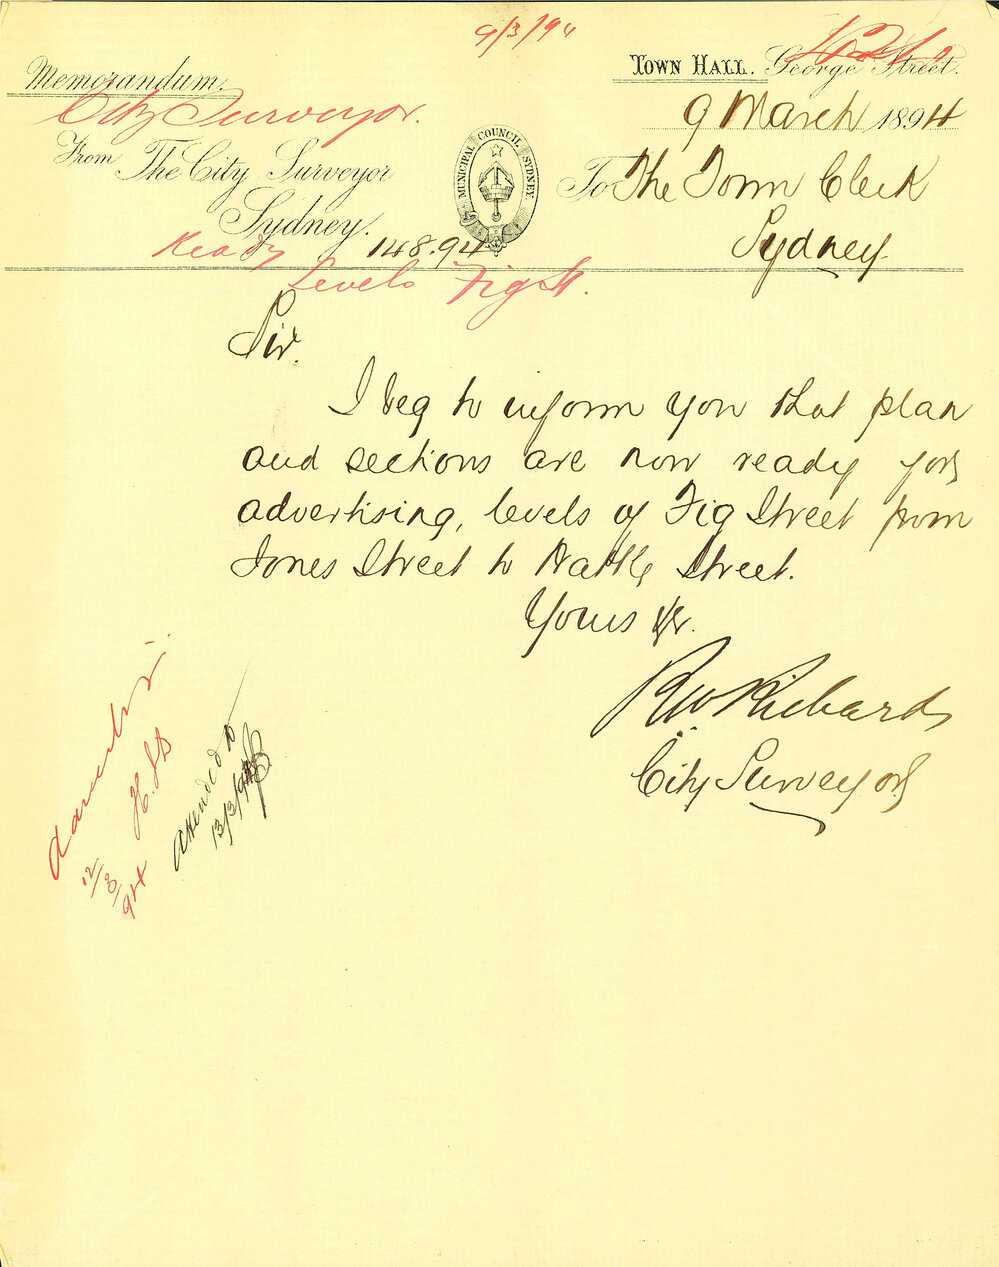 9/3/94
Memorandum.
TOWN HALL. George Street.
City Surveyor.
9 March 1894
From The City Surveyor
Sydney.
MUNICIPAL COUNCIL SYDNEY
To The Town Clerk
Sydney
Ready 148.94
Levels Fig St.
Sir.
I beg to inform you that plan
and sections are now ready for
advertising, levels of Fig Street from
Jones Street to Wattle Street.
Yours &c.
R W Richards
City Surveyor
12/3/94
Attended to
13/3/94